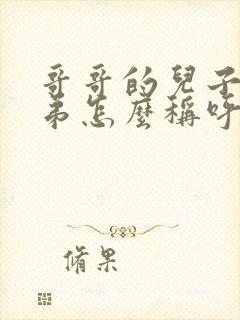 哥哥的兒子
弟怎麼稱呼
脩果